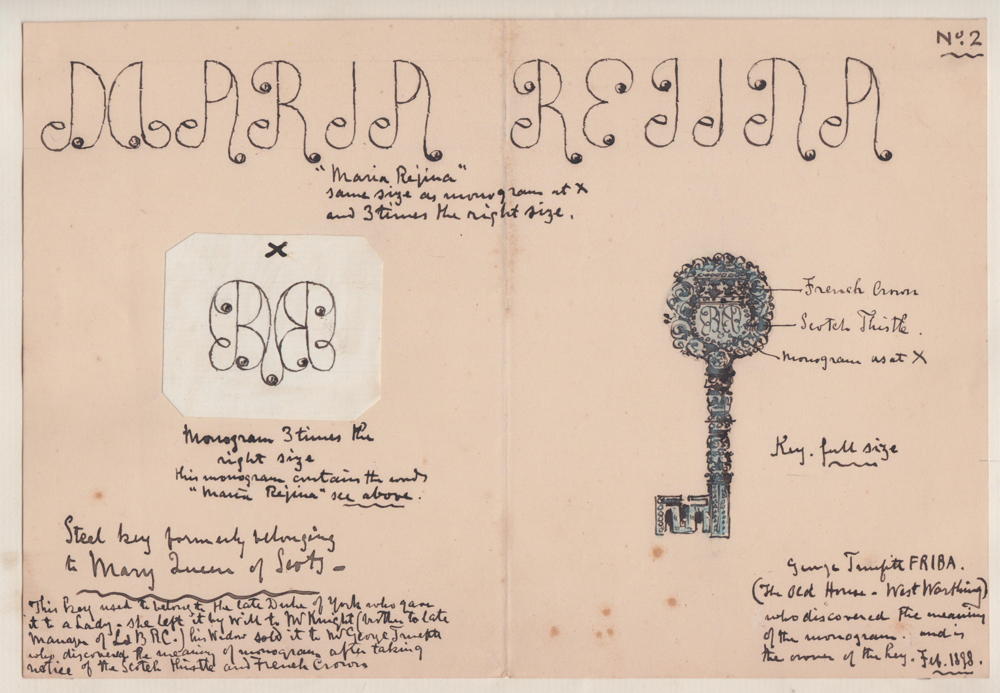 No. 2
MARIA REJINA
"Maria Rejina"
same size as monogram at X
and 3 times the right size.
X
French Crown
Scotch Thistle.
monogram as at X
Key. full size
Monogram 3 times the
right size
this monogram contains the words
"Maria Rejina" see above.
Steel key formerly belonging
to Mary Queen of Scots -
This key used to belong to the late Duke of York who gave
it to a Lady - she left it by Will to Mr Knight (brother to late
Manager of L & B RC.) his Widow sold it to Mr George Truefitt
who discovered the meaning of monogram after taking
notice of the Scotch Thistle and French Crown
George Truefitt FRIBA.
(The Old House - West Worthing)
who discovered the meaning
of the monogram. and is
the owner of the key. Feb. 1898.